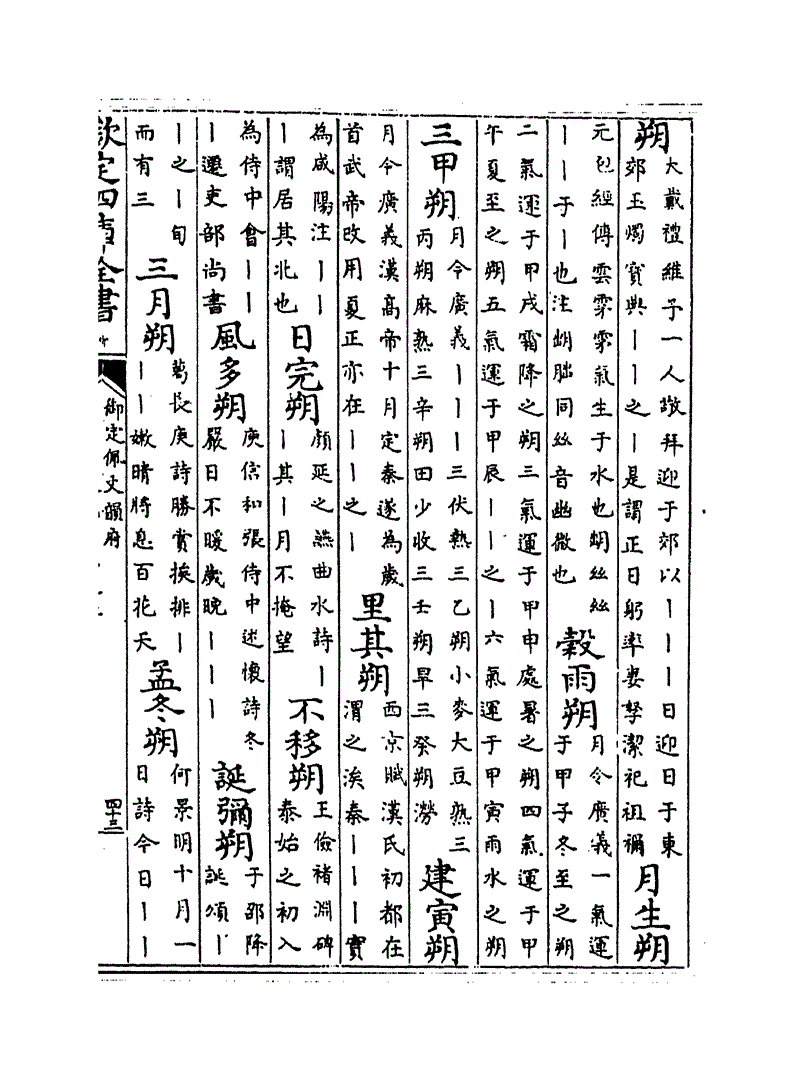 朔
大戴禮維予一人敬拜迎于郊以丨丨丨日迎日于東
郊玉燭寶典丨丨之丨是謂正日躬率妻孥潔祀祖禰
月生朔
元包經傳雲霥霥氣生于水也蚴絲絲
丨丨于丨也注蚴朏同絲音幽微也
穀雨朔
月令廣義一氣運
于甲子冬至之朔
二氣運于甲戌霜降之朔三氣運于甲申處暑之朔四氣運于甲
午夏至之朔五氣運于甲辰丨丨之丨六氣運于甲寅雨水之朔
三甲朔
月令廣義丨丨丨三伏熱三乙朔小麥大豆熟三
丙朔麻熟三辛朔田少收三壬朔旱三癸朔澇
建寅朔
月令廣義漢高帝十月定秦遂為歲
首武帝改用夏正亦在丨丨之丨
里其朔
西京賦漢氏初都在
渭之涘秦丨丨丨實
為咸陽注丨丨
丨謂居其北也
日完朔
顏延之燕曲水詩丨
丨其丨月不掩望
不移朔
王儉褚淵碑
泰始之初入
為侍中會丨丨
丨遷吏部尚書
風多朔
庾信和張侍中述懷詩冬
嚴日不暖歲晚丨丨丨
誕彌朔
于邵降
誕頌丨
丨之丨旬
而有三
三月朔
葛長庚詩勝賞挨排丨
丨丨嫩晴將息百花天
孟冬朔
何景明十月一
日詩今日丨丨
欽定四庫全書
御定佩文韻府
四十三